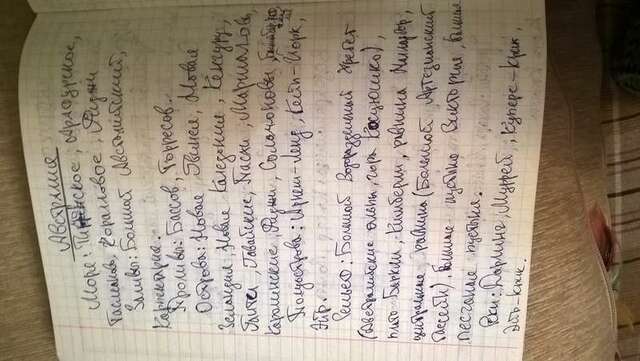 Австралия
Моря: Тиморское, Арафурское,
Тасманово, Коралловое, Фиджи
Заливы: Большой Австралийский,
Карпентария.
Проливы: Бассов, Торресов.
Острова: Новая Гвинея, Новая
Зеландия, Новая Каледония, Кенгуру,
Гавайские, Тасмания, Маршалловы,
Каролинские, Фиджи, Соломоновы
Полуострова: Арнем-Ленд, Кейп-Йорк,
Эйр.
Рельеф: Большой Водораздельный Хребет
(Австралийские альпы, гора Косцюшко),
плато Баркли, Кимберли, равнина Налларбор,
центральная равнина (Большой Артезианский
бассейн) Большая пустыня Виктория, Большая
песчаная пустыня.
Реки: Дарлинг, Муррей, Куперс-Крик,